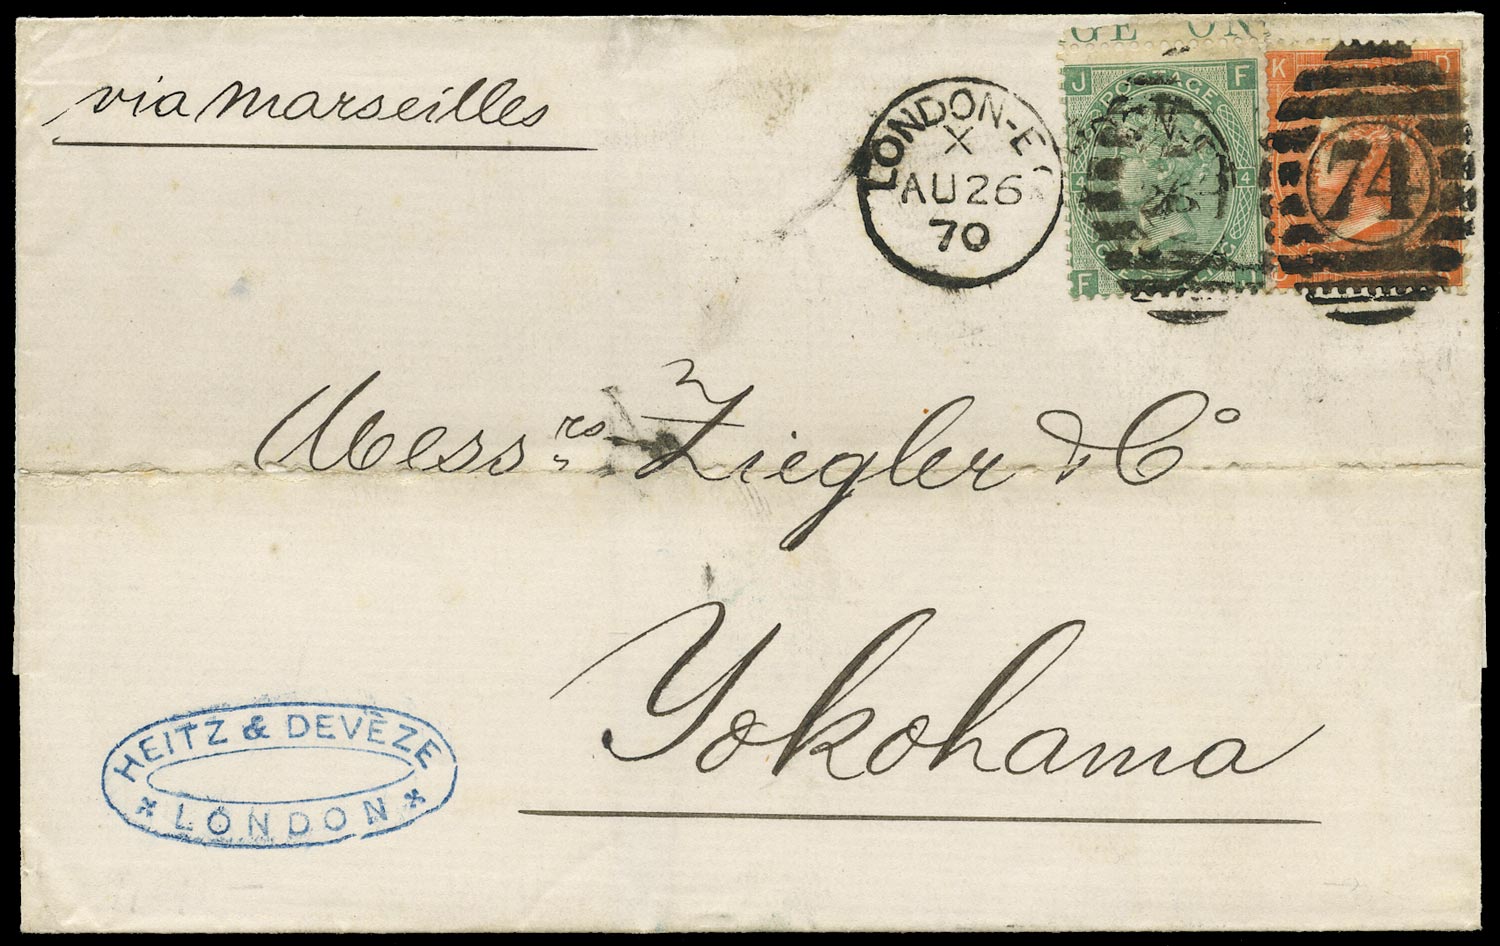 GE ON
via Marseilles
LONDON-E
X
AU 26
70
J POSTAGE F
4 4
F
K D
74
Messrs Ziegler & Co
Yokohama
HEITZ & DEVÈZE
LONDON